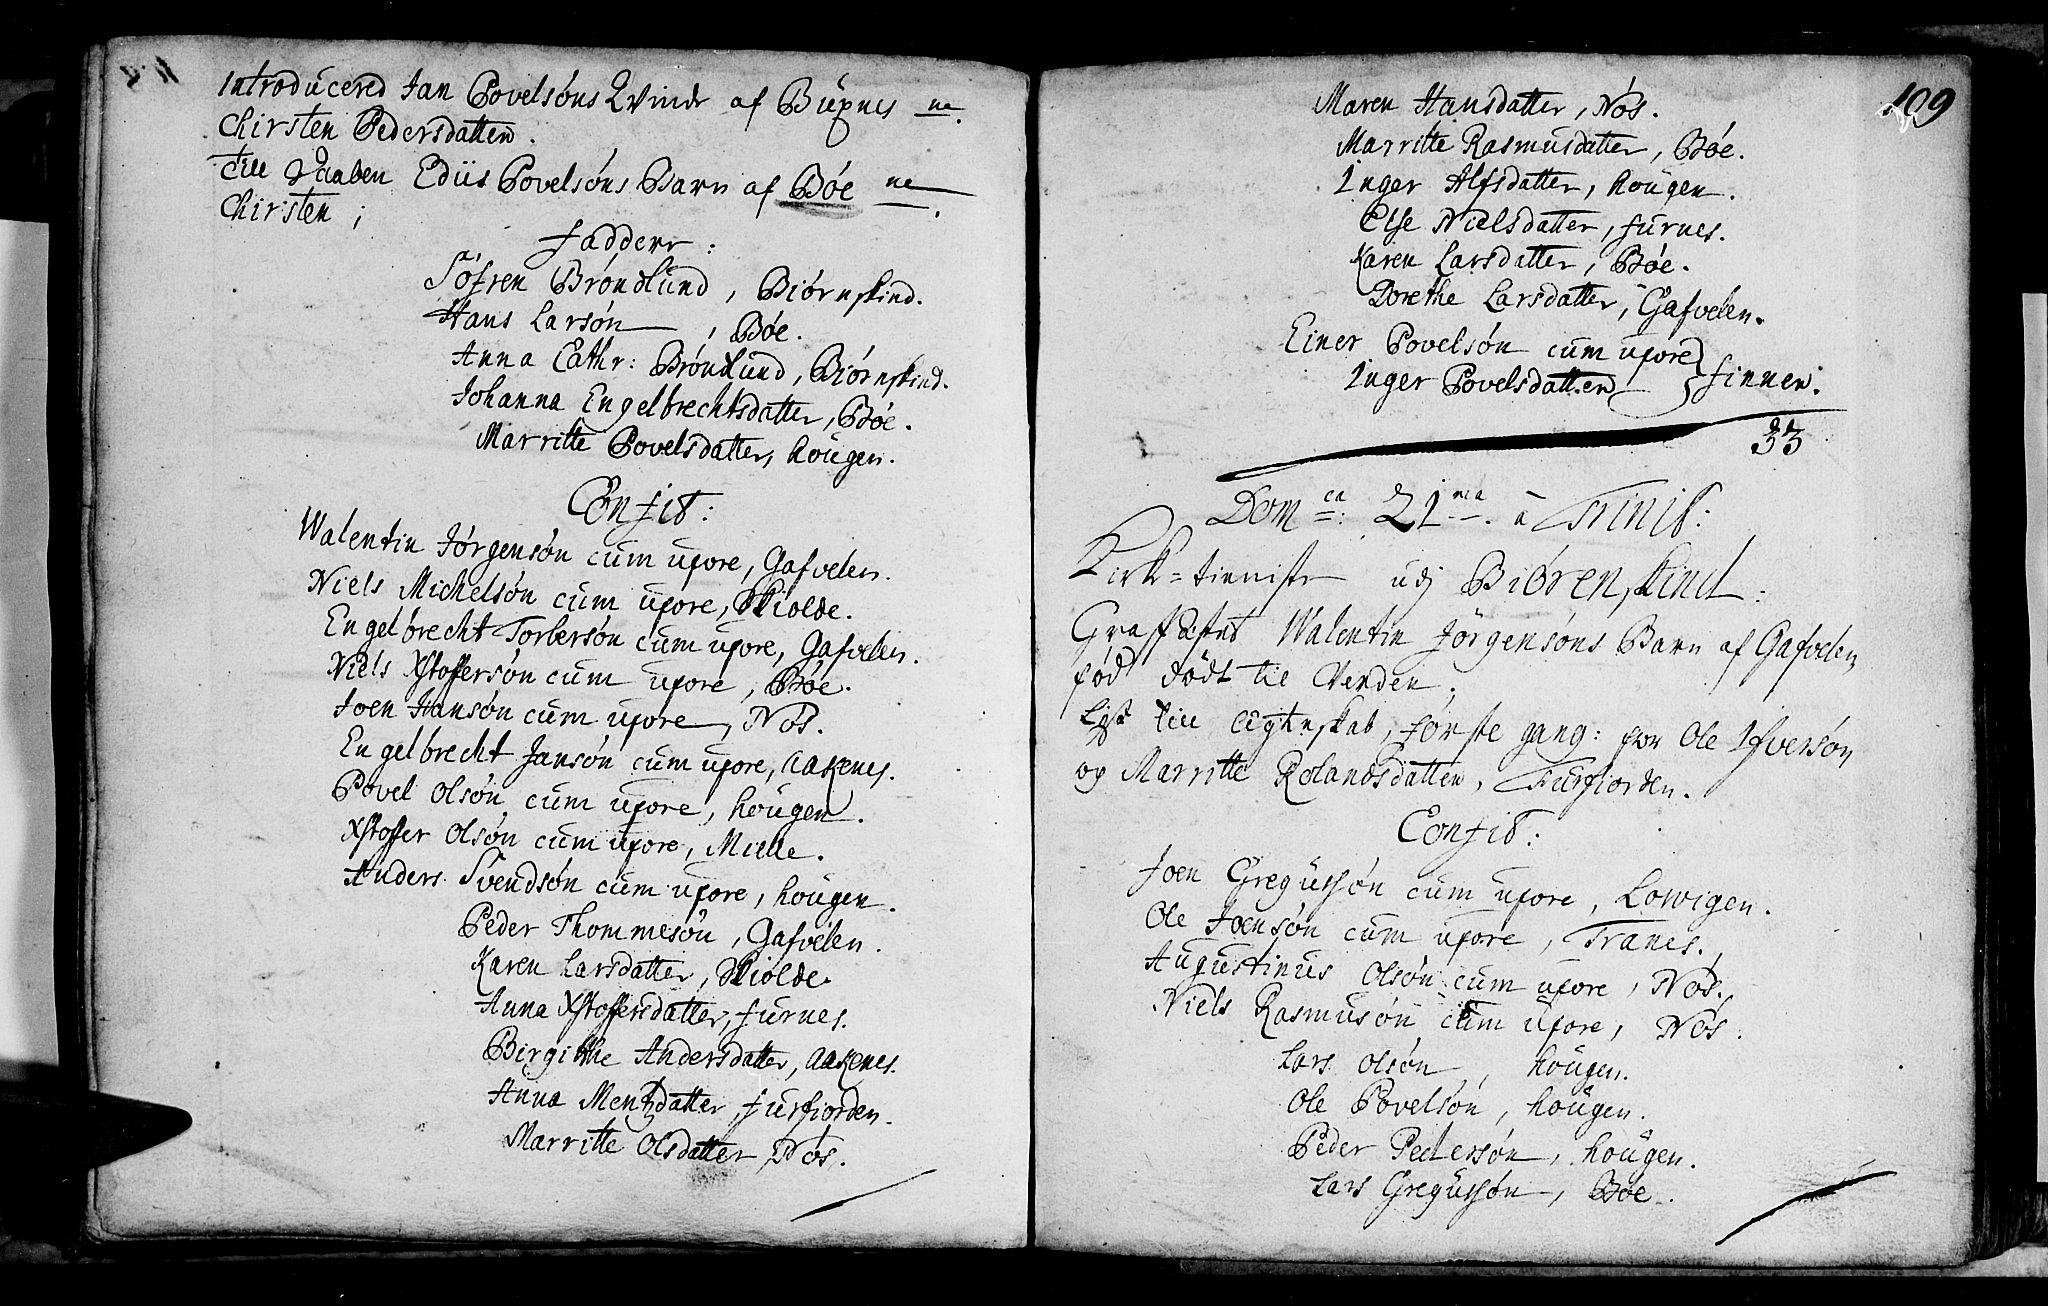 Introducered Jan Povelsøns Qvinde af Buxnes ne.
Chirsten Pedersdatter.
Till Daaben Ediis Povelsøns Barn af Bøe ne.
Chirsten;
Faddere:
Søfren Brøndlund, Biørnskind.
Hans Larsøn, Bøe.
Anna Cathr: Brøndlund, Biørnskind.
Johanna Engelbrechtsdatter, Bøe.
Marritte Povelsdatter, Hougen.
Confit:
Walentin Jørgensøn cum uxore, Gafvelen.
Niels Michelsøn cum uxore, Skiolde.
Engelbrecht Torbersøn cum uxore, Gafvelen.
Niels Xstoffersøn cum uxore, Bøe.
Joen Hansøn cum uxore, Nøs.
Engelbrecht Jansøn cum uxore, Aakenes.
Povel Olsøn cum uxore, Hougen.
Xstoffer Olsøn cum uxore, Mielle.
Anders Svendsøn cum uxore, Hougen.
Peder Thommesøn, Gafvelen.
Karen Larsdatter, Skiolde.
Anna Xstoffersdatter, Furnes.
Birgithe Andersdatter, Aakenes.
Anna Mentzdatter, Furfiorden.
Marritte Olsdatter, Nøs.
109
Maren Hansdatter, Nøs.
Marritte Rasmusdatter, Bøe.
Inger Alfsdatter, Hougen.
Else Nielsdatter, Furnes.
Karen Larsdatter, Bøe.
Dorethe Larsdatter, Gafvelen.
Einer Povelsøn cum uxore
Inger Povelsdatter } Finner.
33
Domca: 21ma. à Trinit:
Kirke=tieniste udj Biørenskind:
Graffæstet Walentin Jørgensøns Barn af Gafvelen,
fød dødt til Verden.
Lyst till ægteskab, første gang: for Ole Ifversøn
og Marritte Rolandsdatter, Furfiorden.
Confit:
Joen Gregussøn cum uxore, Lovvigen.
Ole Joensøn cum uxore, Tranes.
Augustinus Olsøn cum uxore, Nøs.
Niels Rasmusøn cum uxore, Nøs.
Lars Olsøn, Hougen.
Ole Povelsøn, Hougen.
Peder Pedersøn, Hougen.
Lars Gregussøn, Bøe.